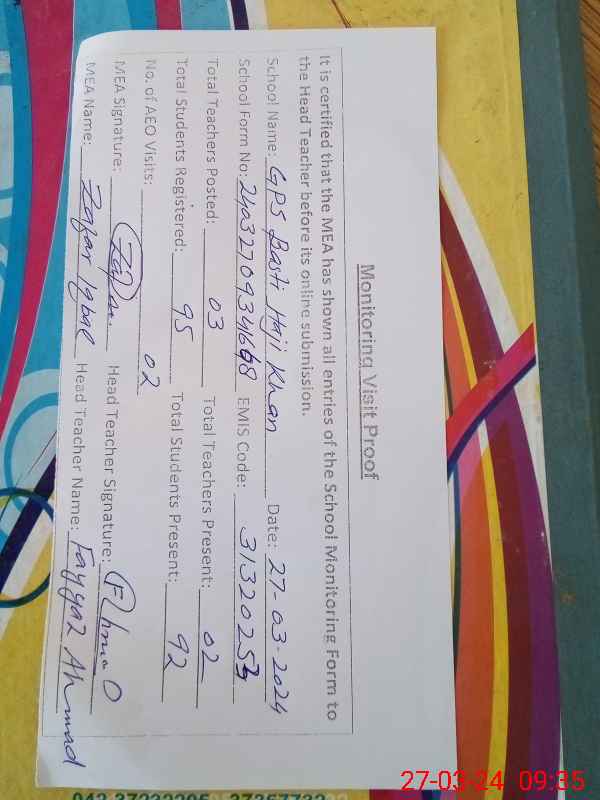 Monitoring Visit Proof
It is certified that the MEA has shown all entries of the School Monitoring Form to
the Head Teacher before its online submission.
School Name: GPS Basti Haji Khan Date: 27-03-2024
School Form No: EMIS Code:
Total Teachers Posted: 03 Total Teachers Present: 02
Total Students Registered: 95 Total Students Present: 92
No. of AEO Visits: 02
MEA Signature: Head Teacher Signature:
MEA Name: Zafar Iqbal Head Teacher Name: Fayyaz Ahmad
27-03-24 09:35